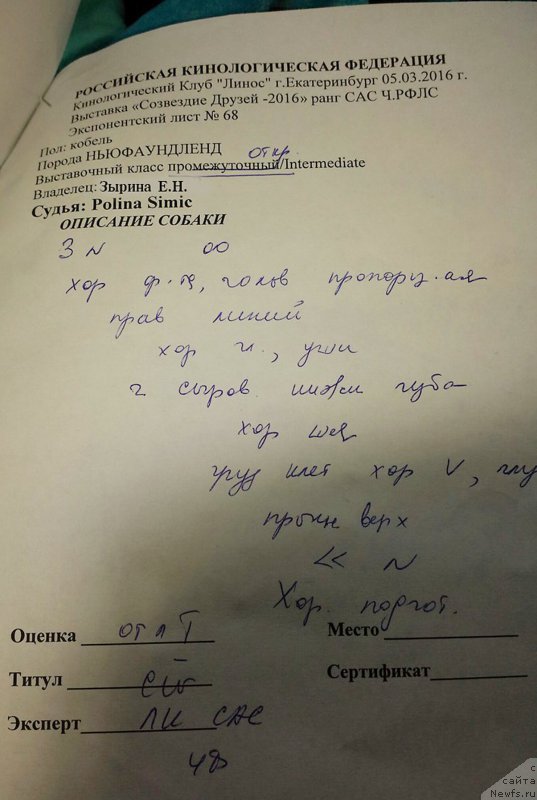 РОССИЙСКАЯ КИНОЛОГИЧЕСКАЯ ФЕДЕРАЦИЯ
Кинологический Клуб "Линос" г.Екатеринбург 05.03.2016 г.
Выставка «Созвездие Друзей -2016» ранг САС Ч.РФЛС
Экспонентский лист № 68
Пол: кобель
Порода НЬЮФАУНДЛЕНД
откр.
Выставочный класс промежуточный/Intermediate
Владелец: Зырина Е.Н.
Судья: Polina Simic
ОПИСАНИЕ СОБАКИ
З N оо
хор ф-та, голов пропорц-ая
прав линий
хор и., уши
сыров. нижн губа
хор шея
груд клет хор V, глу
прочн верх
<< N
Хор. подгот.
Оценка отл Т Место
Титул Сертификат
Эксперт ЛК САС
ЧФ
с сайта Newfs.ru